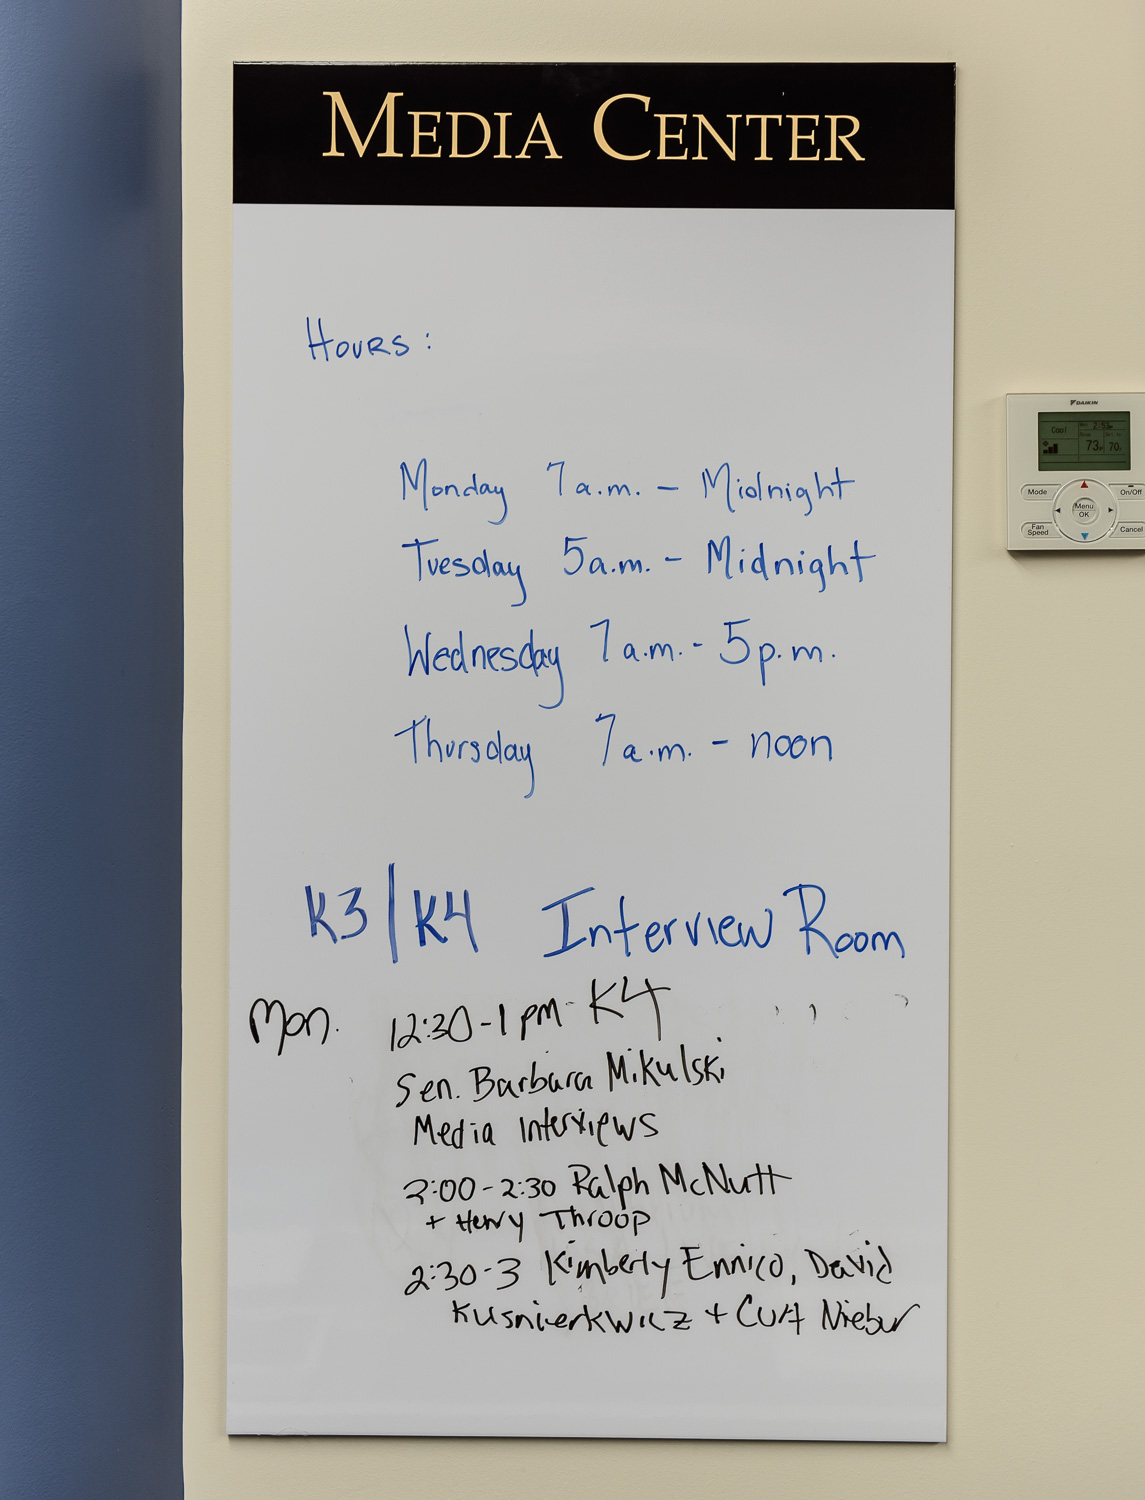 MEDIA CENTER
HOURS:
Monday 7 a.m. - Midnight
Tuesday 5 a.m. - Midnight
Wednesday 7 a.m. - 5 p.m.
Thursday 7 a.m. - noon
K3/K4 Interview Room
Mon. 12:30-1 pm- K4
Sen. Barbara Mikulski
Media Interviews
2:00-2:30 Ralph McNutt
+ Henry Throop
2:30-3 Kimberly Ennico, David
Kusnierkwicz + Curt Niebur
DAIKIN
Cool
73
70
Mode
On/Off
Menu
OK
Fan
Speed
Cancel